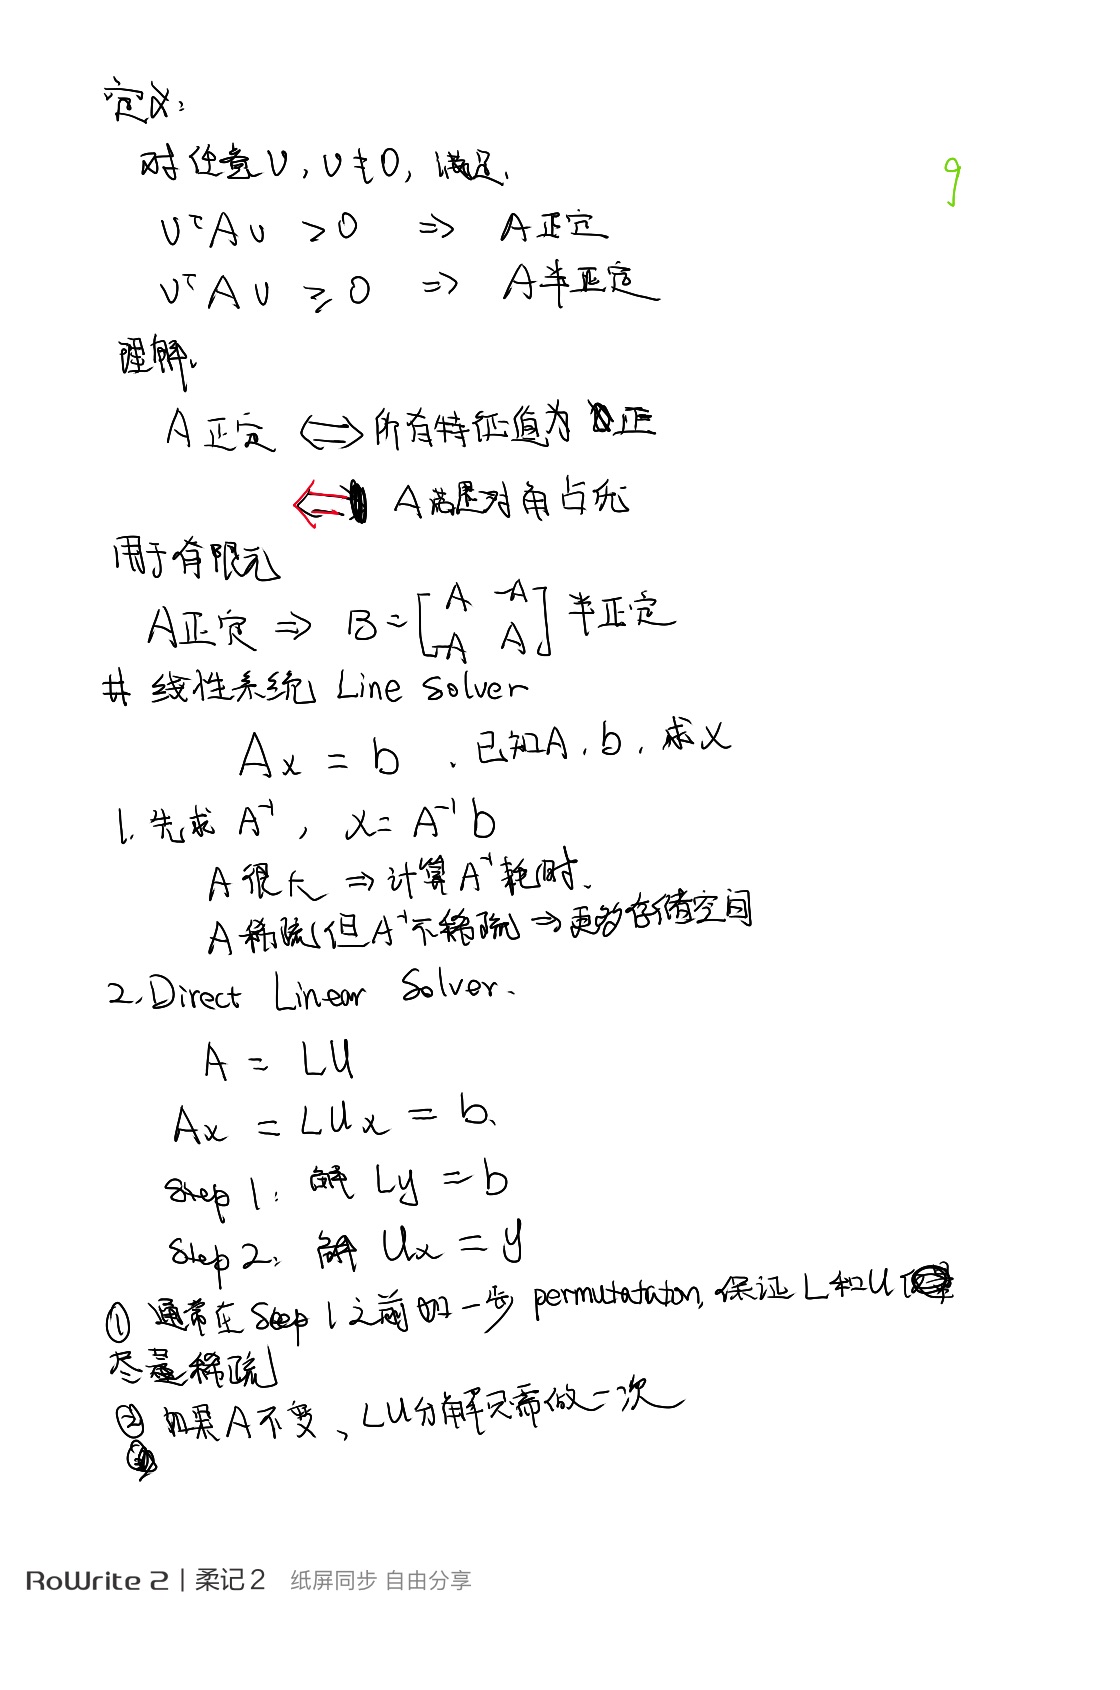 定义:
对任意 v, v≠0, 满足.
9
vᵀAv > 0 ⇒ A正定
vᵀAv ≥ 0 ⇒ A半正定
理解.
A正定 ⟺ 所有特征值为正
⟸ A满足对角占优
用于有限元
A正定 ⇒ B = [A -A; -A A] 半正定
# 线性系统 Line Solver
Ax = b . 已知A, b, 求x
1. 先求 A⁻¹, x = A⁻¹b
A很大 ⇒ 计算A⁻¹耗时.
A稀疏(但A⁻¹不稀疏 ⇒ 更多存储空间
2. Direct Linear Solver.
A = LU
Ax = LUx = b.
Step 1: 解 Ly = b
Step 2: 解 Ux = y
① 通常在 Step 1 之前加一步 permutataton, 保证L和U
尽量稀疏
② 如果A不变, LU分解只需做一次
RoWrite 2 | 柔记2 纸屏同步 自由分享